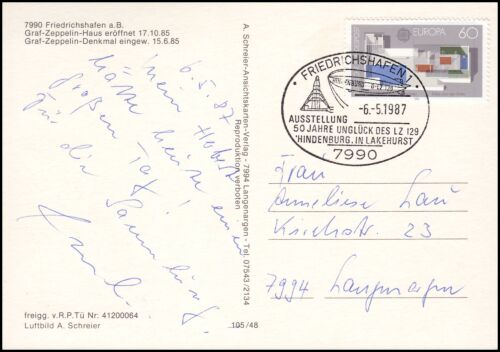 7990 Friedrichshafen a.B.
Graf-Zeppelin-Haus eröffnet 17.10.85
Graf-Zeppelin-Denkmal eingew. 15.6.85
6.5.87
Mein
hätte heute einen
großen Tag!
Für die Sammlung
freigg. v.R.P.Tü Nr: 41200064
Luftbild A. Schreier
195/48
A. Schreier-Ansichtskarten-Verlag - 7994 Langenargen - Tel. 07543/2134
Reproduktion verboten
EUROPA
60
FRIEDRICHSHAFEN 1
-6.-5.1987
AUSSTELLUNG
50 JAHRE UNGLÜCK DES LZ 129
'HINDENBURG' IN LAKEHURST
7990
Frau
Anneliese Lau
Kirchstr. 23
7994 Langenargen